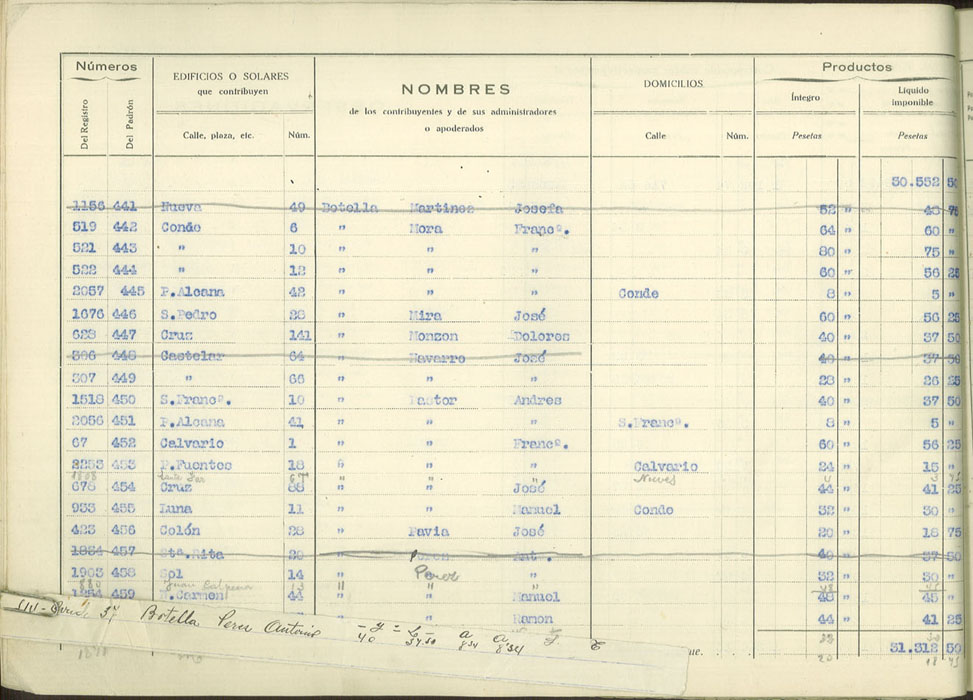 Números EDIFICIOS O SOLARES que contribuyen NOMBRES de los contribuyentes y de sus administradores o apoderados DOMICILIOS Productos
Del Registro Del Padrón Calle, plaza, etc. Núm. Calle Núm. Íntegro Pesetas Líquido imponible Pesetas
30.552 50
1156 441 Nueva 49 Botella Martinez Josefa 52 " 48 75
519 442 Conde 6 " Mora Francº. 64 " 60 "
521 443 " 10 " " " 80 " 75 "
522 444 " 12 " " " 60 " 56 25
2057 445 P.Alcana 42 " " " Conde 8 " 5 "
1676 446 S.Pedro 28 " Mira José 60 " 56 25
628 447 Cruz 141 " Monzon Dolores 40 " 37 50
306 448 Castelar 64 " Navarro José 40 " 37 50
307 449 " 66 " " " 28 " 26 25
1518 450 S.Francº. 10 " Pastor Andres 40 " 37 50
2056 451 P.Alcana 41 " " " S.Francº. 8 " 5 "
67 452 Calvario 1 " " Francº. 60 " 56 25
2253 453 P.Fuentes 18 " " " Calvario 24 " 15 "
1808 67 " " " Nieves
678 454 Cruz 88 " " José 44 " 41 25
933 455 Luna 11 " " Manuel Conde 32 " 30 "
423 456 Colón 28 " Pavia José 20 " 18 75
1854 457 Stª.Rita 29 " Ant º. 40 " 37 50
1903 458 Sol 14 " Perez " 32 " 30 "
880 Juan 13 " " 48 45
459 .Carmen 44 Manuel 48 " 45 "
Ramon 44 " 41 25
Botella Perez Antonio 40 37.50 a 834 a 834
que. 31.312 50
20 18 75